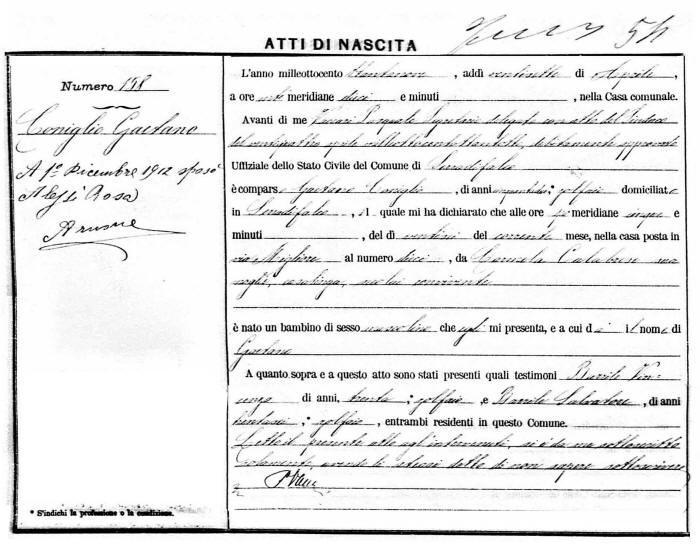 ATTI DI NASCITA
54
Numero 198
Coniglio Gaetano
A 1° Dicembre 1912 sposò
Alessi Rosa
L'anno milleottocento ottantanove, addì ventinotto di Aprile,
a ore anti meridiane dieci e minuti , nella Casa comunale.
Avanti di me Pasquale Segretario delegato con atto del Sindaco
debitamente approvato
Uffiziale dello Stato Civile del Comune di Serradifalco
è comparso Gaetano Coniglio, di anni ; zolfaio domiciliato
in Serradifalco, il quale mi ha dichiarato che alle ore meridiane cinque e
minuti , del dì del corrente mese, nella casa posta in
via Migliore al numero dieci, da Carmela Calabrese sua
moglie, casalinga, seco lui convivente
è nato un bambino di sesso mascolino che egli mi presenta, e a cui dà il nome di
Gaetano
A quanto sopra e a questo atto sono stati presenti quali testimoni Barrile Vin-
cenzo di anni, trenta; zolfaio, e Barrile Salvatore, di anni
; zolfaio, entrambi residenti in questo Comune.
Letto il presente atto agli intervenuti, si è da me sottoscritto
solamente, avendo gli stessi detto di non sapere sottoscrivere
* S'indichi la professione o la condizione.